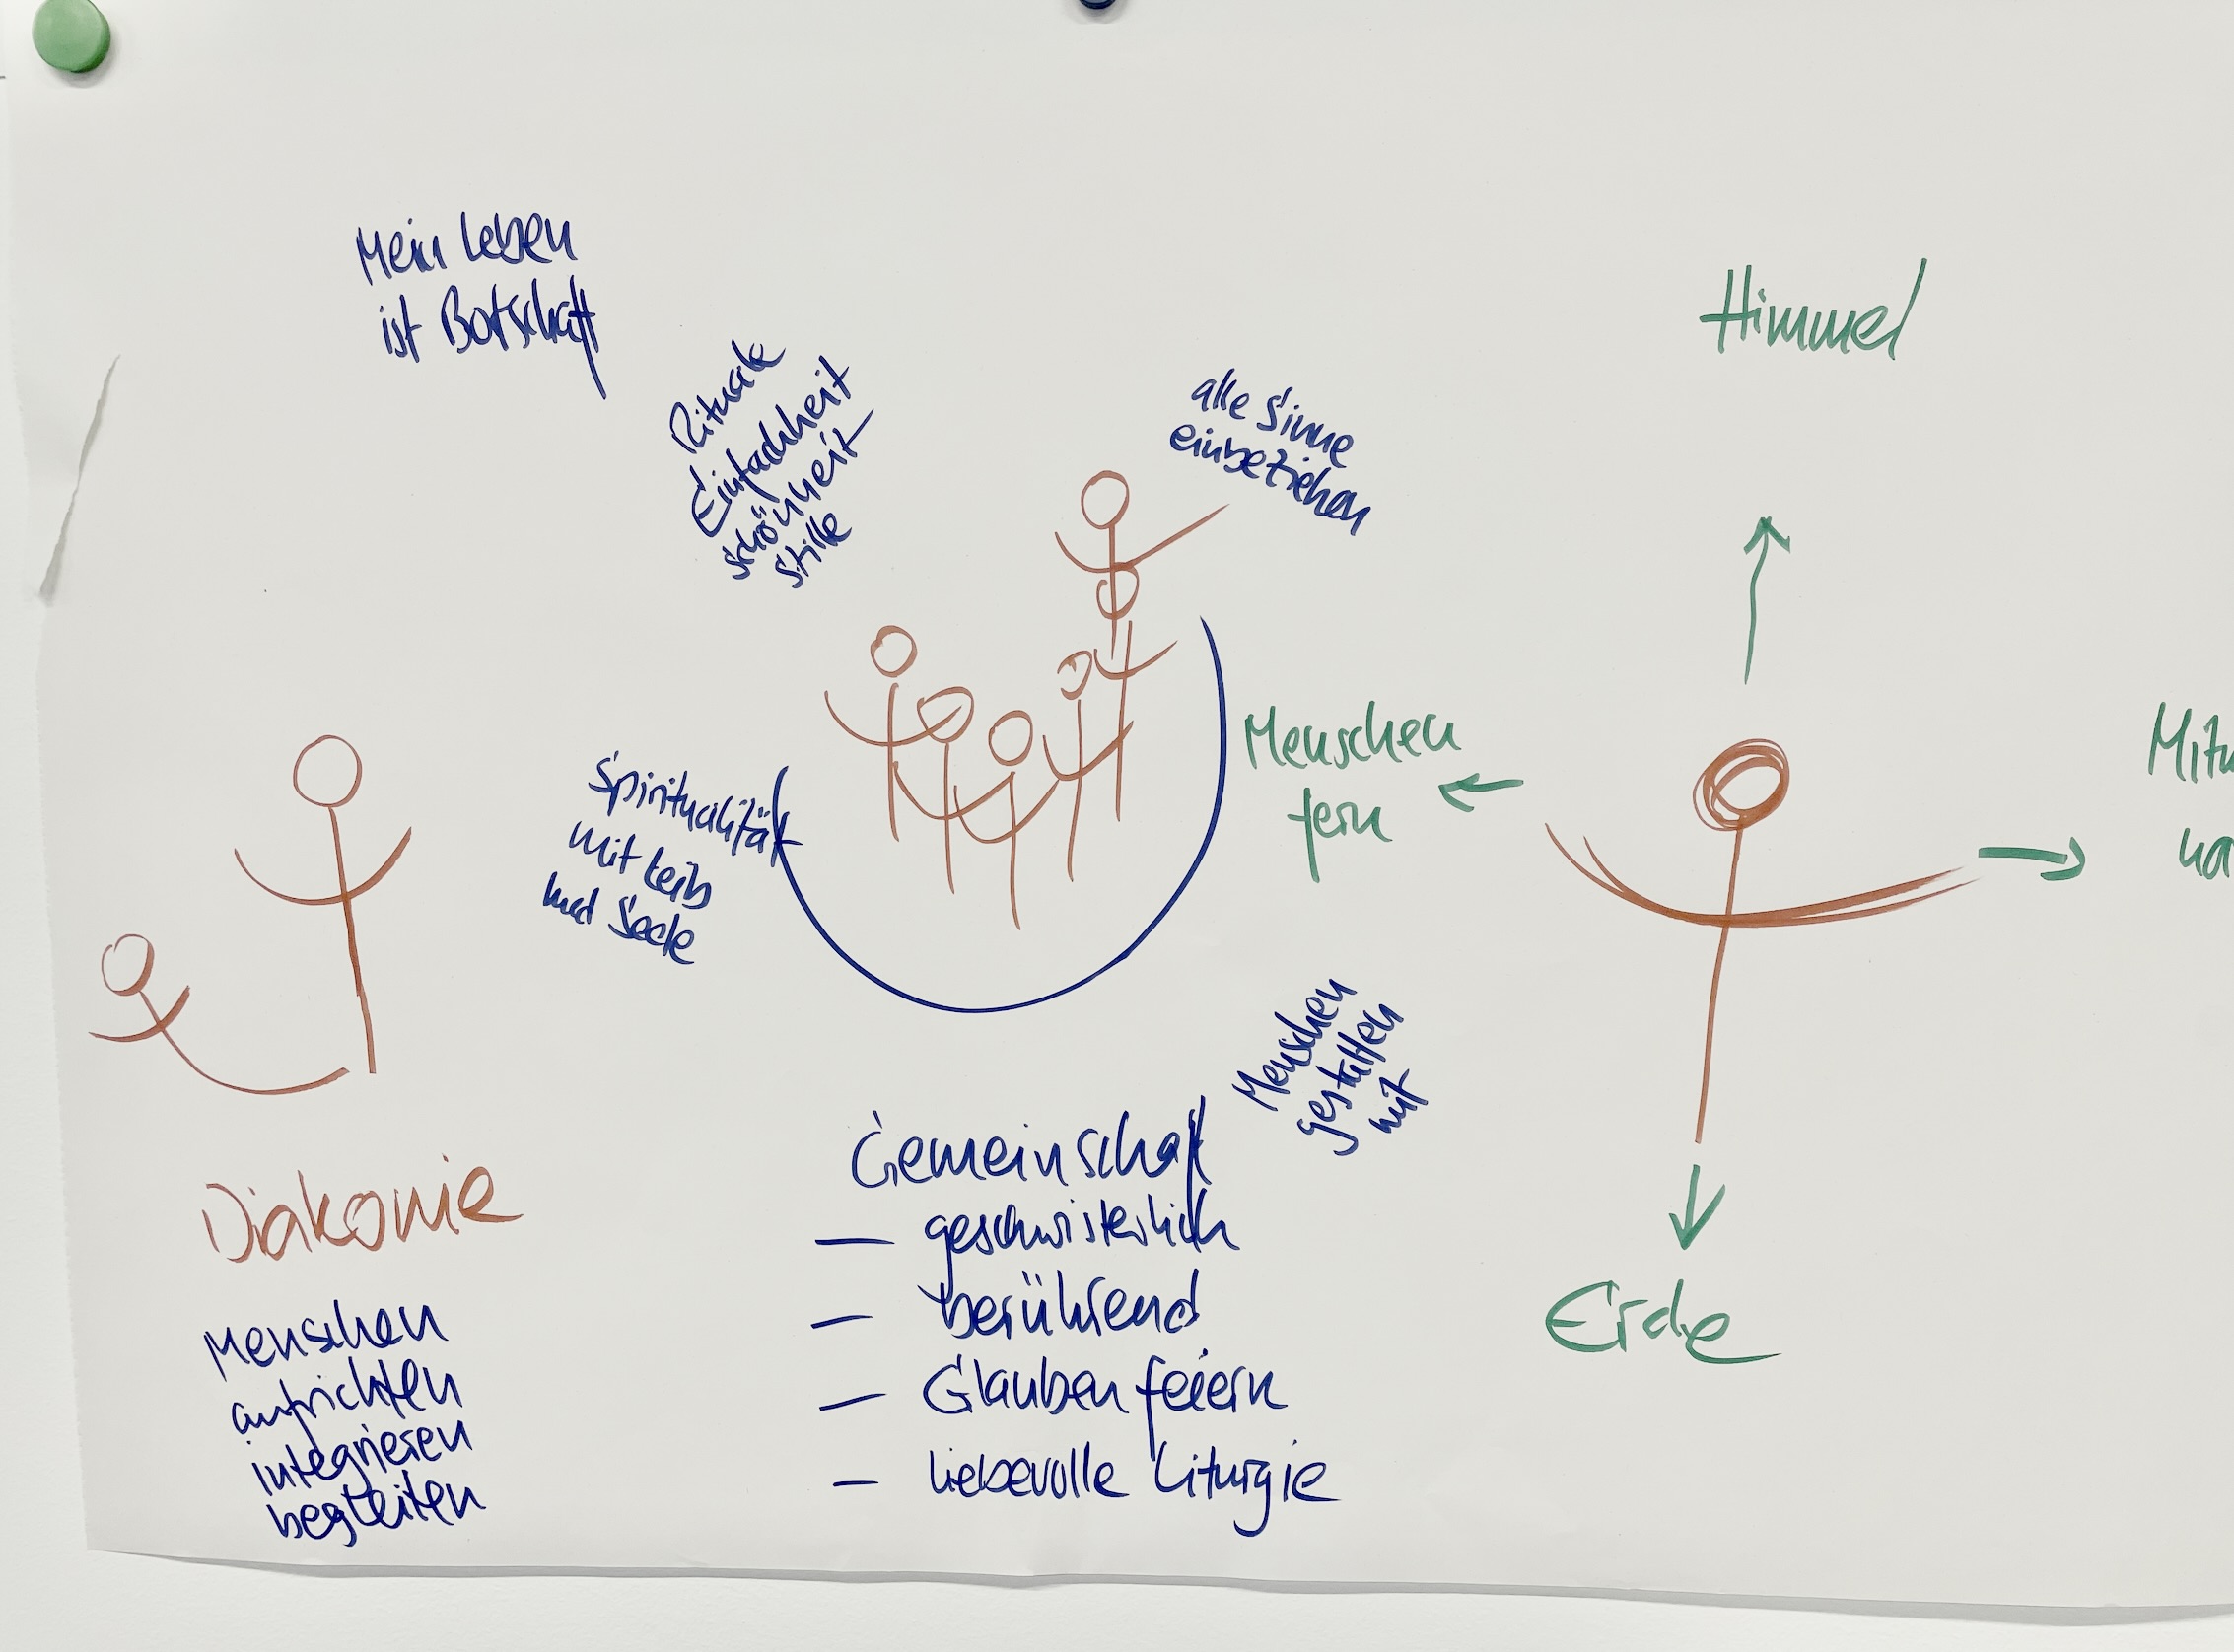 Mein Leben
ist Botschaft
Rituale
Einfachheit
Schönheit
Stille
alle Sinne
einbeziehen
Spiritualität
mit Leib
und Seele
Menschen
gestalten
mit
Diakonie
Menschen
aufrichten
integrieren
begleiten
Gemeinschaft
— geschwisterlich
— berührend
— Glauben feiern
— liebevolle Liturgie
Himmel
Menschen
fern
Mitm
na
Erde